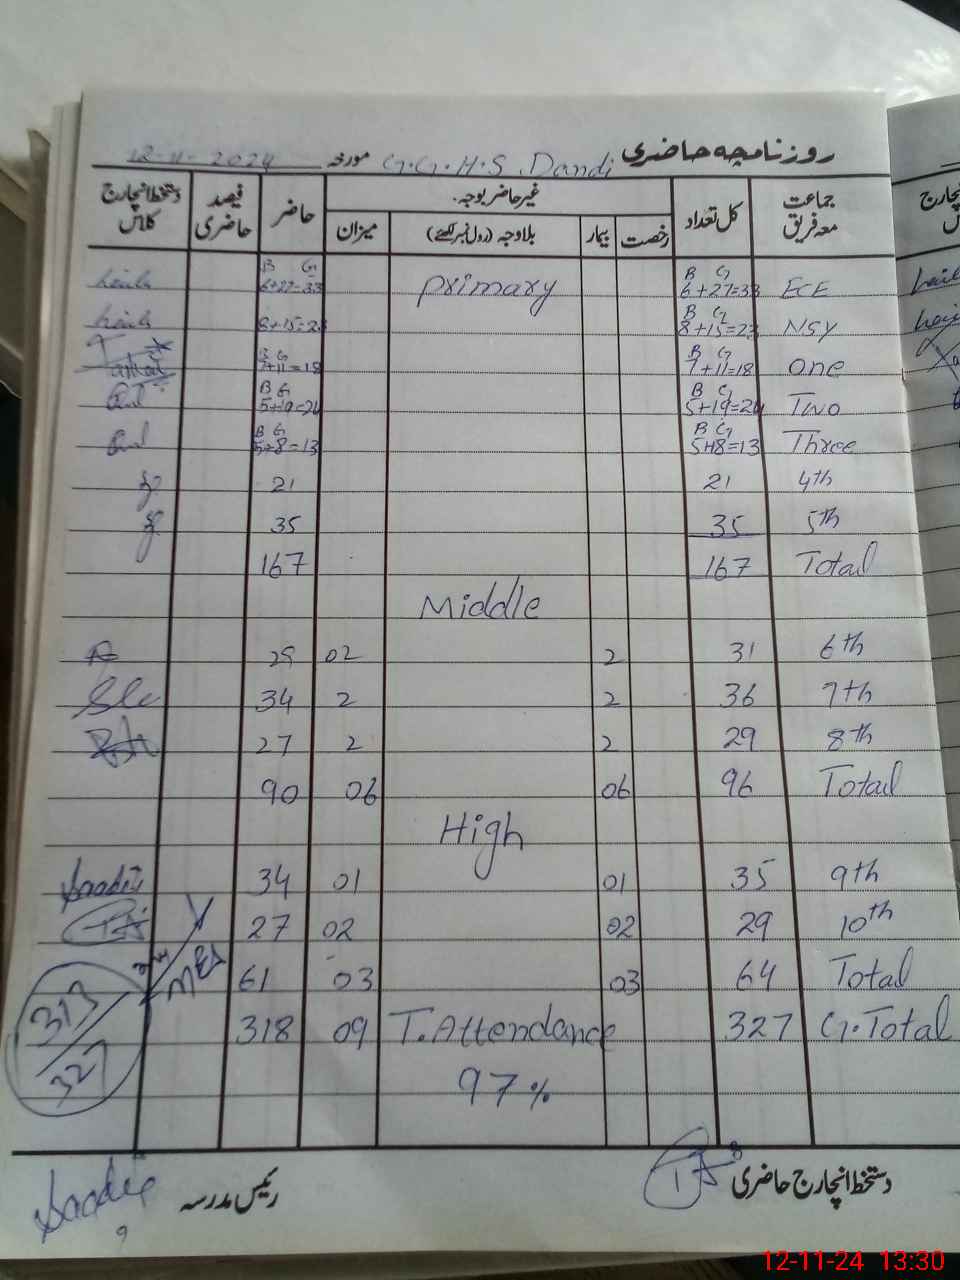 روزنامچہ حاضری G.G.H.S. Dandi مورخہ 12-11-2024
جماعت معہ فریق کل تعداد غیر حاضر بوجہ۔ حاضر فیصد حاضری دستخط انچارج کلاس
رخصت بیمار بلاوجہ (رول نمبر لکھئے) میزان
Primary
ECE B G 6+27=33 B G 6+27=33
NSY B G 8+15=23 8+15=23
One B G 7+11=18 B G 7+11=18
Two B G 5+19=24 B G 5+19=24
Three B G 5+8=13 B G 5+8=13
4th 21 21
5th 35 35
Total 167 167
Middle
6th 31 2 02 29
7th 36 2 2 34
8th 29 2 2 27
Total 96 06 06 90
High
9th 35 01 01 34 Saadia
10th 29 02 02 27
Total 64 03 03 61 MEA
G.Total 327 T.Attendance 09 318
313/327
97%
دستخط انچارج حاضری رئیس مدرسہ Saadia
9
12-11-24 13:30